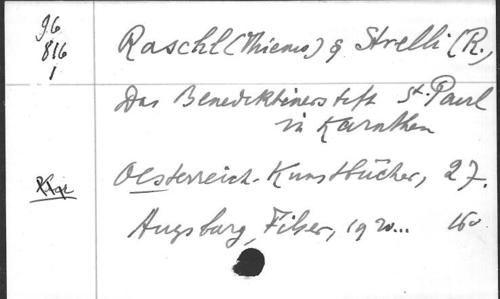 96
816
1
Raschl (Thiemo) & Strelli (R.)
Das Benediktinerstift St. Paul
in Karnthen
Oesterreich. Kunstbücher, 27.
Augsburg, Filser, 192... 16o